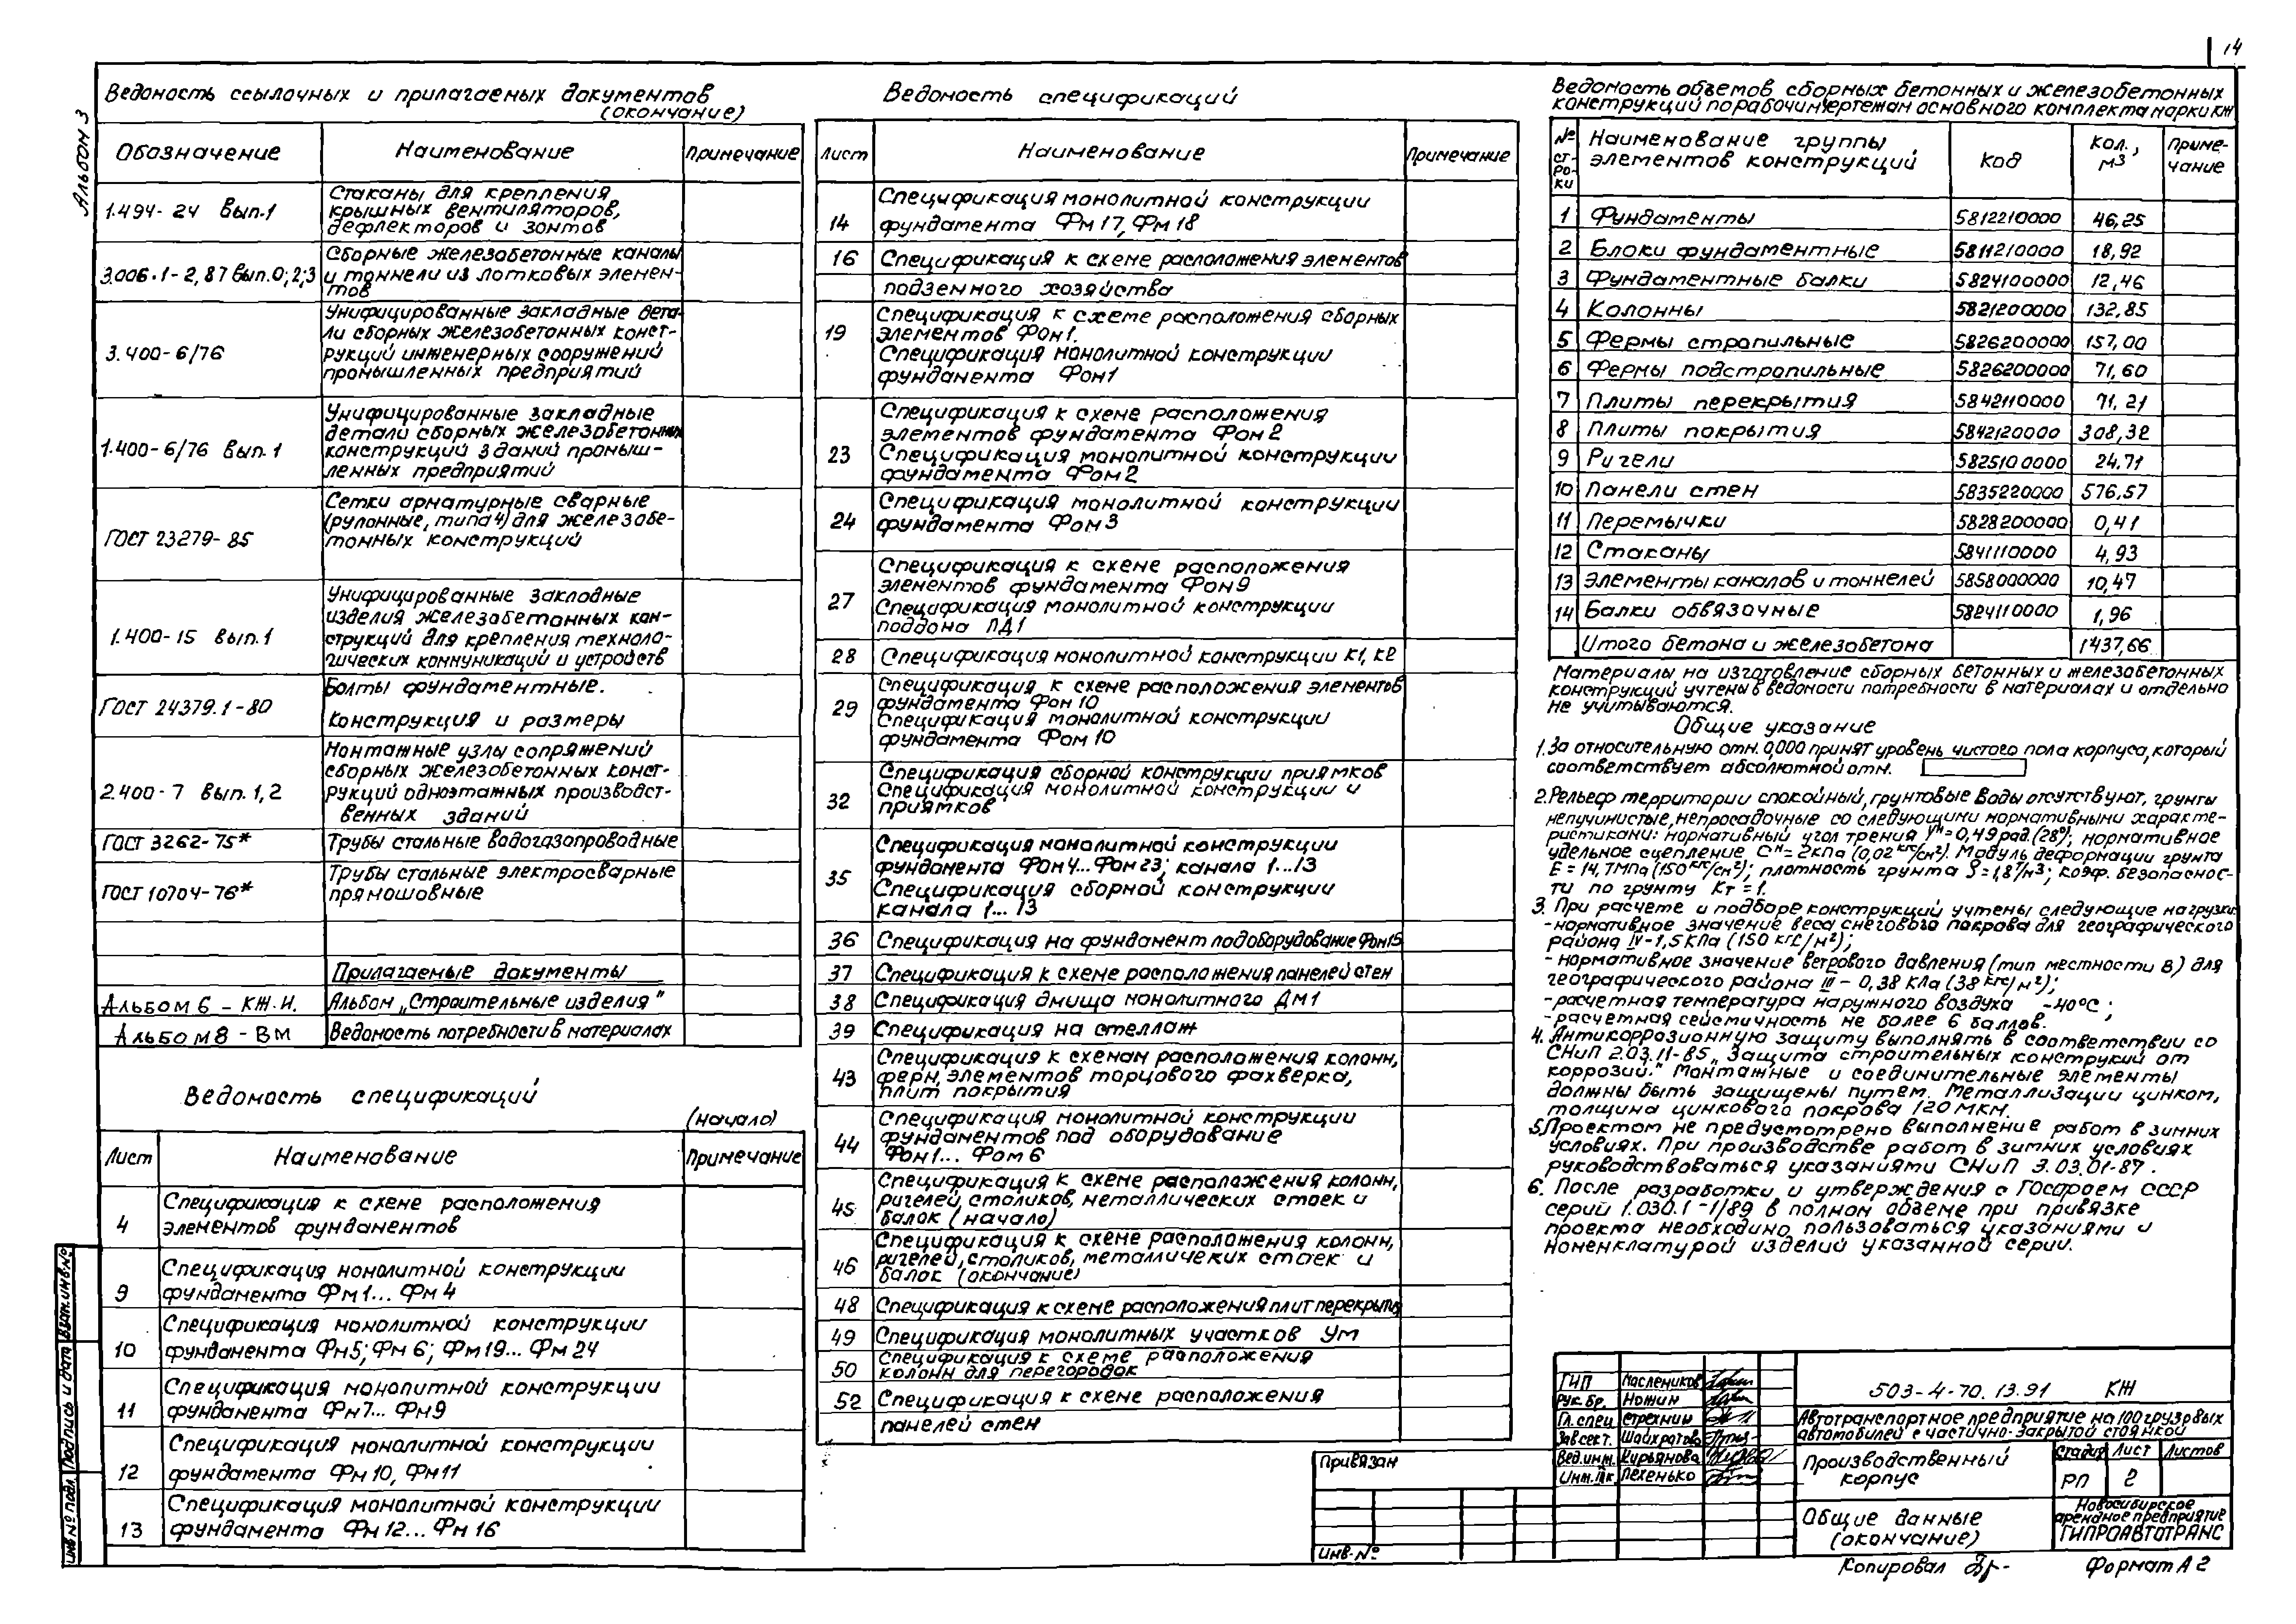 14
Альбом 3
Ведомость ссылочных и прилагаемых документов
(окончание)
Обозначение Наименование Примечание
1.494-24 Вып.1 Стаканы для крепления
крышных вентиляторов,
дефлекторов и зонтов
3.006.1-2,87 Вып.0;2;3 Сборные железобетонные каналы
и тоннели из лотковых элемен-
тов
3.400-6/76 Унифицированные закладные дета-
ли сборных железобетонных конст-
рукций инженерных сооружений
промышленных предприятий
1.400-6/76 Вып.1 Унифицированные закладные
детали сборных железобетонных
конструкций зданий промыш-
ленных предприятий
ГОСТ 23279-85 Сетки арматурные сварные
(рулонные, типа 4) для железобе-
тонных конструкций
1.400-15 Вып.1 Унифицированные закладные
изделия железобетонных кон-
струкций для крепления техноло-
гических коммуникаций и устройств
ГОСТ 24379.1-80 Болты фундаментные.
Конструкция и размеры
2.400-7 Вып.1,2 Монтажные узлы сопряжений
сборных железобетонных конст-
рукций одноэтажных производст-
венных зданий
ГОСТ 3262-75* Трубы стальные водогазопроводные
ГОСТ 10704-76* Трубы стальные электросварные
прямошовные
Прилагаемые документы
Альбом 6 - КЖ.И. Альбом „Строительные изделия"
Альбом 8 - ВМ Ведомость потребности в материалах
Ведомость спецификаций
(начало)
Лист Наименование Примечание
4 Спецификация к схеме расположения
элементов фундаментов
9 Спецификация монолитной конструкции
фундамента Фм1... Фм4
10 Спецификация монолитной конструкции
фундамента Фм5; Фм6; Фм19... Фм24
11 Спецификация монолитной конструкции
фундамента Фм7... Фм9
12 Спецификация монолитной конструкции
фундамента Фм10, Фм11
13 Спецификация монолитной конструкции
фундамента Фм12... Фм16
Ведомость спецификаций
Лист Наименование Примечание
14 Спецификация монолитной конструкции
фундамента Фм17, Фм18
16 Спецификация к схеме расположения элементов
подземного хозяйства
19 Спецификация к схеме расположения сборных
элементов Фом1.
Спецификация монолитной конструкции
фундамента Фом1
23 Спецификация к схеме расположения
элементов фундамента Фом2
Спецификация монолитной конструкции
фундамента Фом2
24 Спецификация монолитной конструкции
фундамента Фом3
27 Спецификация к схеме расположения
элементов фундамента Фом9
Спецификация монолитной конструкции
поддона ПД1
28 Спецификация монолитной конструкции К1, К2
29 Спецификация к схеме расположения элементов
фундамента Фом10
Спецификация монолитной конструкции
фундамента Фом10
32 Спецификация сборной конструкции приямков
Спецификация монолитной конструкции и
приямков
35 Спецификация монолитной конструкции
фундамента Фом4...Фом23; канала 1...13
Спецификация сборной конструкции
канала 1...13
36 Спецификация на фундамент под оборудование Фом15
37 Спецификация к схеме расположения панелей стен
38 Спецификация днища монолитного Дм1
39 Спецификация на стеллаж
43 Спецификация к схемам расположения колонн,
ферм, элементов торцового фахверка,
плит покрытия
44 Спецификация монолитной конструкции
фундаментов под оборудование
Фом1... Фом6
45 Спецификация к схеме расположения колонн,
ригелей, столиков, металлических стоек и
балок (начало)
46 Спецификация к схеме расположения колонн,
ригелей, столиков, металличеких стоек и
балок (окончание)
48 Спецификация к схеме расположения плит перекрытия
49 Спецификация монолитных участков Ум
50 Спецификация к схеме расположения
колонн для перегородок
52 Спецификация к схеме расположения
панелей стен
Ведомость объемов сборных бетонных и железобетонных
конструкций по рабочим чертежам основного комплекта марки КЖ
№ ст-ро-ки Наименование группы элементов конструкций Код Кол., м3 Приме-чание
1 Фундаменты 5812210000 46,25
2 Блоки фундаментные 5811210000 18,92
3 Фундаментные балки 5824100000 12,46
4 Колонны 5821200000 132,85
5 Фермы стропильные 5826200000 157,00
6 Фермы подстропильные 5826200000 71,60
7 Плиты перекрытия 5842110000 71,21
8 Плиты покрытия 5842120000 308,32
9 Ригели 5825100000 24,71
10 Панели стен 5835220000 576,57
11 Перемычки 5828200000 0,41
12 Стаканы 5841110000 4,93
13 Элементы каналов и тоннелей 5858000000 10,47
14 Балки обвязочные 5824110000 1,96
Итого бетона и железобетона 1437,66
Материалы на изготовление сборных бетонных и железобетонных
конструкций учтены в ведомости потребности в материалах и отдельно
не учитываются.
Общие указание
1. За относительную отм. 0,000 принят уровень чистого пола корпуса, который
соответствует абсолютной отм.
2. Рельеф территории спокойный, грунтовые воды отсутствуют, грунты
непучинистые, непросадочные со следующими нормативными характе-
ристиками: нормативный угол трения φн=0,49 рад.(28°); нормативное
удельное сцепление Сн=2кПа (0,02 кгс/см²). Модуль деформации грунта
Е=14,7МПа (150 кгс/см²); плотность грунта ρ=1,8т/м³; коэф. безопаснос-
ти по грунту Кг=1.
3. При расчете и подборе конструкций учтены следующие нагрузки:
-нормативное значение веса снегового покрова для географического
района IV-1,5 КПа (150 кгс/м²);
-нормативное значение ветрового давления (тип местности В) для
географического района III - 0,38 КПа (38 кгс/м²);
-расчетная температура наружного воздуха -40°С;
-расчетная сейсмичность не более 6 баллов.
4. Антикоррозионную защиту выполнять в соответствии со
СНиП 2.03.11-85 „Защита строительных конструкий от
коррозий." Монтажные и соединительные элементы
должны быть защищены путем. Металлизации цинком,
толщина цинкового покрова 120 мкм.
5. Проектом не предусмотрено выполнение работ в зимних
условиях. При производстве работ в зимних условиях
руководствоваться указаниями СНиП 3.03.01-87.
6. После разработки и утверждения с Госстроем СССР
серий 1.030.1-1/89 в полном объеме при привязке
проекта необходимо пользоваться указаниями и
номенклатурой изделий указанной серии.
ГИП Маслеников
Рук.бр. Номин
Гл.спец Стрехнин
Зав.сект. Шайхратова
Вед.инж. Курьянова
Инж. Iк. Пехенько
503-4-70.13.91 КЖ
Автотранспортное предприятие на 100 грузовых
автомобилей с частично-закрытой стоянкой
Производственный
корпус
Стадия Лист Листов
РП 2
Общие данные
(окончание)
Новосибирское
арендное предприятие
ГИПРОАВТОТРАНС
Привязан
Инв.№
Копировал
Формат А2
Инв.№ подл. Подпись и дата Взам.инв.№